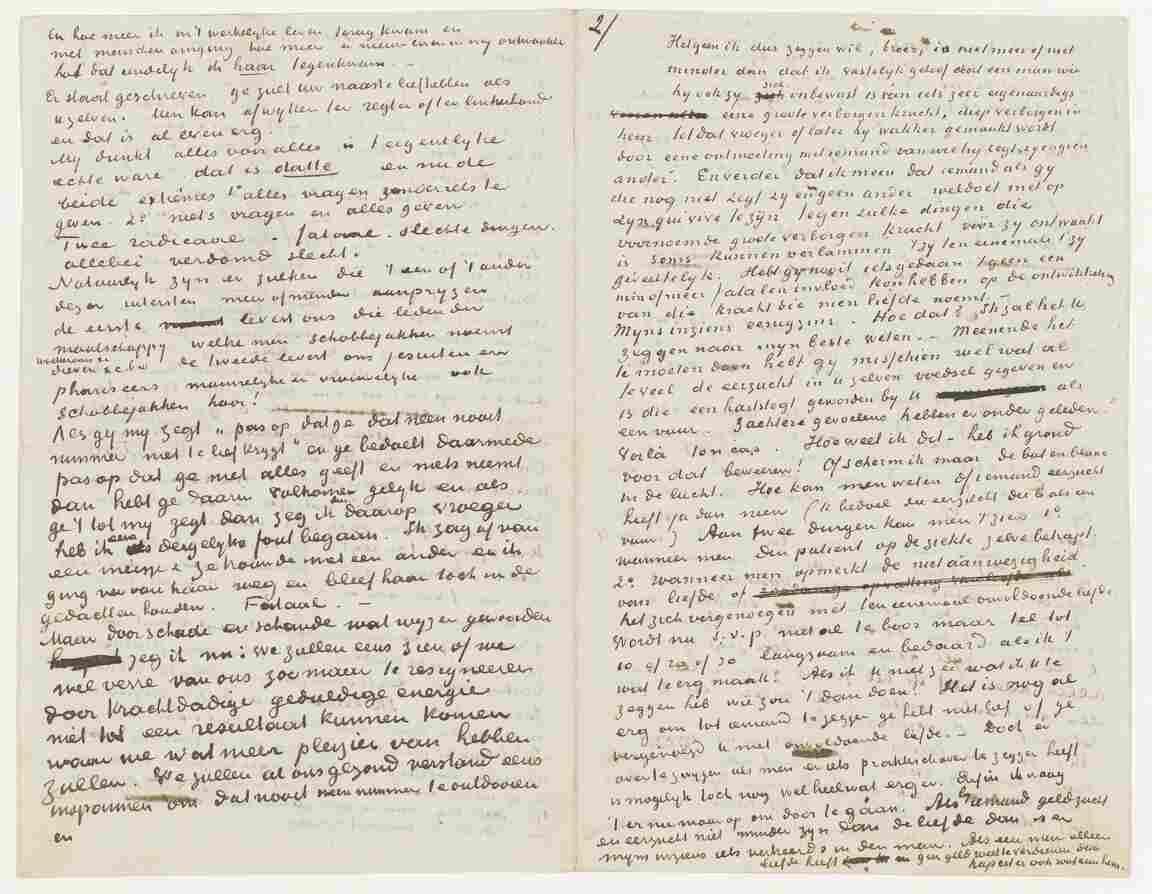 En hoe meer ik in 't werkelijke leven terug kwam en
met menschen omging hoe meer er nieuw leven in mij ontwaakte
tot dat eindelijk ik haar tegenkwam. –
Er staat geschreven ge zult uw naaste liefhebben als
uzelven. Men kan afwijken ter regter of ter linkerhand
en dat is al even erg.
Mij dunkt alles voor alles is 't eigentlijke
echte ware dat is datte en nu de
beide extrèmes 1° alles vragen zonder iets te
geven. 2° niets vragen en alles geven.
Twee radicaal – fataal – slechte dingen.
allebei verdomd slecht.
Natuurlijk zijn er zulken die 't een of 't ander
dezer uitersten meer of minder aanprijzen
de eerste levert ons die leden der
maatschappij welke men schobbejakken noemt
dieven &c &c de tweede levert ons jesuiten en
phariseers mannelijke en vrouwelijke ook
schobbejakken hoor!
Als gij mij zegt „pas op dat ge dat neen nooit
nummer niet te lief krijgt" en ge bedoelt daarmede
pas op dat ge niet alles geeft en niets neemt
dan hebt ge daarin volkomen gelijk en als
ge 't tot mij zegt dan zeg ik daarop vroeger
heb ik dergelijke fout begaan. Ik zag af van
een meisje & ze trouwde met een ander en ik
ging ver van haar weg en bleef haar toch in de
gedachten houden. Fataal. –
Maar door schade en schande wat wijzer geworden
zeg ik nu: We zullen eens zien of we
wel verre van ons zoo maar te resigneeren
door krachtdadige geduldige energie
niet tot een resultaat kunnen komen
waar we wat meer plezier van hebben
zullen. We zullen al ons gezond verstand eens
inspannen om dat nooit neen nummer te ontdooien
en
2/
Hetgeen ik dus zeggen wil, broer, is niet meer of niet
minder dan dat ik vastelijk geloof doch een man wie
hij ook zij zich onbewust is van iets zeer eigenaardigs
eene groote verborgen kracht, diep verborgen in
hem tot dat vroeger of later hij wakker gemaakt wordt
door eene ontmoeting met iemand van wie hij zegt zij en geen
ander. En verder dat ik meen dat iemand als gij
die nog niet zegt zij en geen ander wel doet met op
zijn qui vive te zijn tegen zulke dingen die
voornoemde groote verborgen kracht vóór zij ontwaakt
is soms kunnen verlammen 't zij ten eenemale 't zij
gedeeltelijk. Hebt gij nooit iets gedaan 't geen een
min of meer fatalen invloed kon hebben op de ontwikkeling
van die kracht die men liefde noemt.
Mijns inziens . Hoe dat? Ik zal het U
zeggen naar mijn beste weten. – Meenende het
te moeten doen hebt gij misschien wel wat al
te veel de eerzucht in u zelven voedsel gegeven en
is die een hartstogt geworden bij u als
een vuur. Zachtere gevoelens hebben er onder geleden.
Voilà ton cas. Hoe weet ik dit – heb ik grond
voor dat beweeren? Of scherm ik maar
in de lucht. Hoe kan men weten of iemand eerzucht
heeft ja dan neen (ik bedoel de eerzucht die is als een
vuur.) Aan twee dingen kan men 't zien 1°
wanneer men den patient op de ziekte zelve betrapt.
2° wanneer men opmerkt de niet aanwezigheid
van liefde of
het zich vergenoegen met ten eenenmale onvoldoende liefde
Wordt nu s.v.p. niet al te boos maar tel tot
10 of 20 of 30 langzaam en bedaard als ik 't
wat te erg maak! Als ik U niet zei wat ik U te
zeggen heb wie zou 't dan doen! Het is nog al
erg om tot iemand te zeggen ge hebt niet lief of ge
vergenoegd U met onvoldoende liefde. – Doch er
over te zwijgen als men er iets praktisch over te zeggen heeft
is mogelijk toch nog wel heel wat erger. Enfin ik waag
't er nu maar op om door te gaan. Als iemand geldzucht
en eerzucht niet minder zijn dan de liefde dan is er
mijns inziens iets verkeerds in den man. Als een man alleen
liefde heeft en geen geld weet te verdienen dan
hapert er ook wat aan hem.